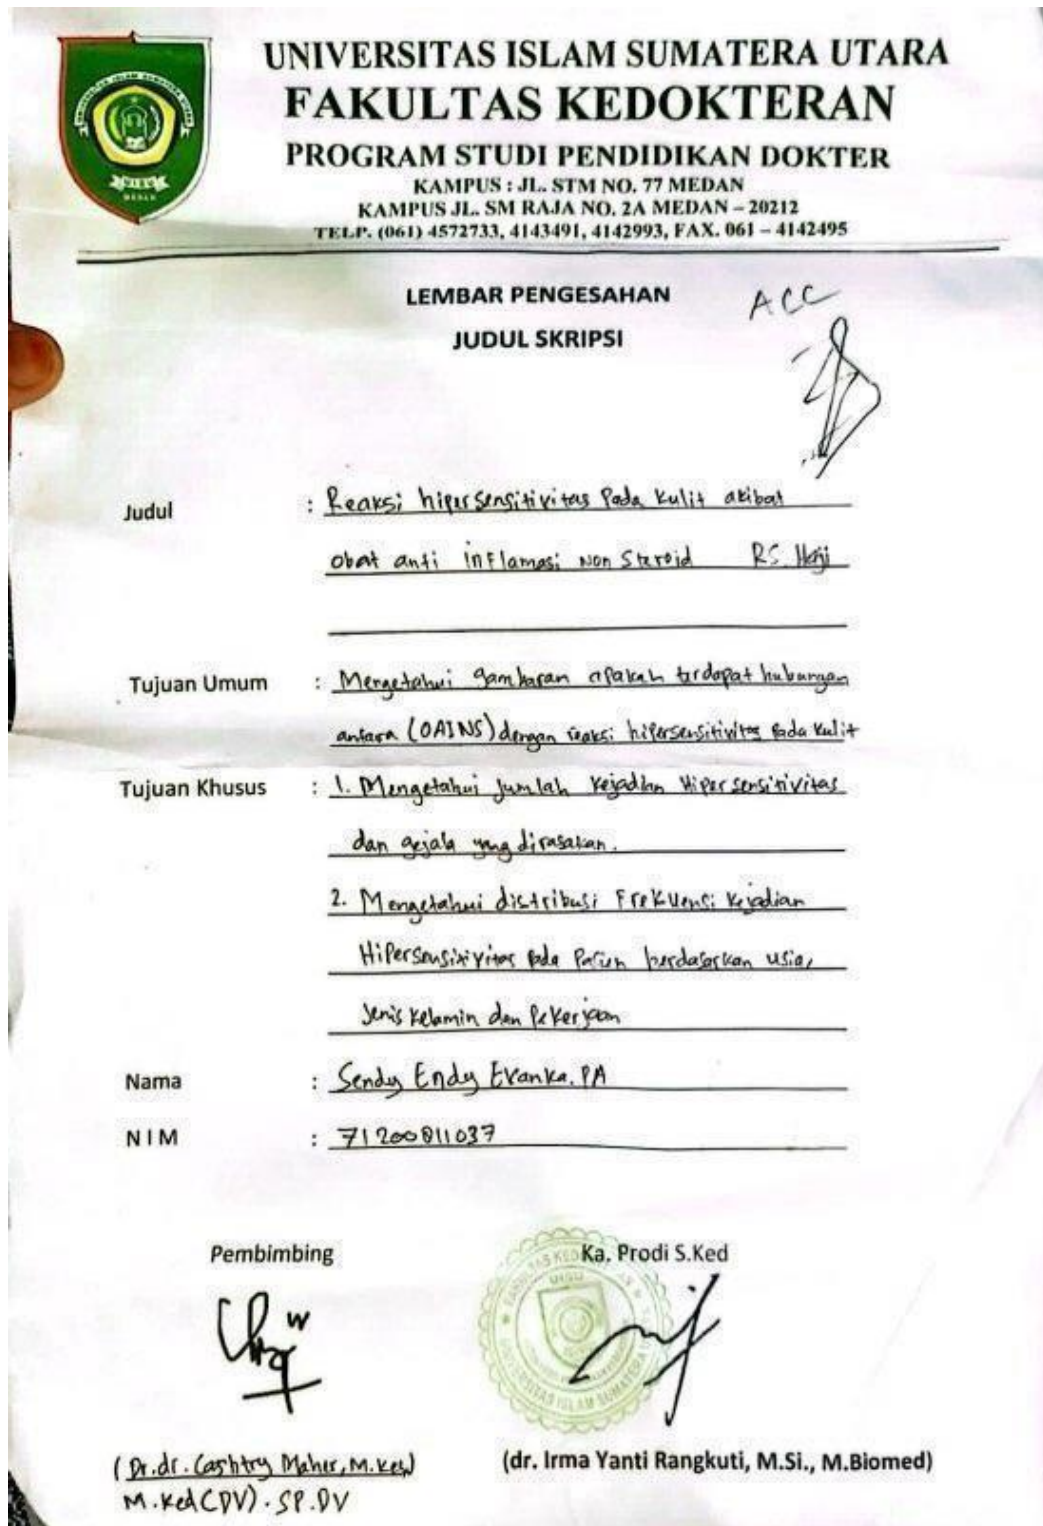 UNIVERSITAS ISLAM SUMATERA UTARA
FAKULTAS KEDOKTERAN
PROGRAM STUDI PENDIDIKAN DOKTER
KAMPUS : JL. STM NO. 77 MEDAN
KAMPUS JL. SM RAJA NO. 2A MEDAN – 20212
TELP. (061) 4572733, 4143491, 4142993, FAX. 061 – 4142495
LEMBAR PENGESAHAN
ACC
JUDUL SKRIPSI
Judul : Reaksi hipersensitivitas Pada Kulit akibat
obat anti inflamasi Non Steroid RS. Haji
Tujuan Umum : Mengetahui gambaran apakah terdapat hubungan
antara (OAINS) dengan reaksi hipersensitivitas pada kulit
Tujuan Khusus : 1. Mengetahui Jumlah Kejadian Hipersensitivitas
dan gejala yang dirasakan.
2. Mengetahui distribusi Frekuensi Kejadian
Hipersensitivitas pada Pasien berdasarkan usia,
Jenis Kelamin dan Pekerjaan
Nama : Sendy Endy Evanka. PA
NIM : 71200811037
Pembimbing
Ka. Prodi S.Ked
(Dr.dr. Cashtry Maher, M.Ked)
M.Ked(DV). SP.DV
(dr. Irma Yanti Rangkuti, M.Si., M.Biomed)